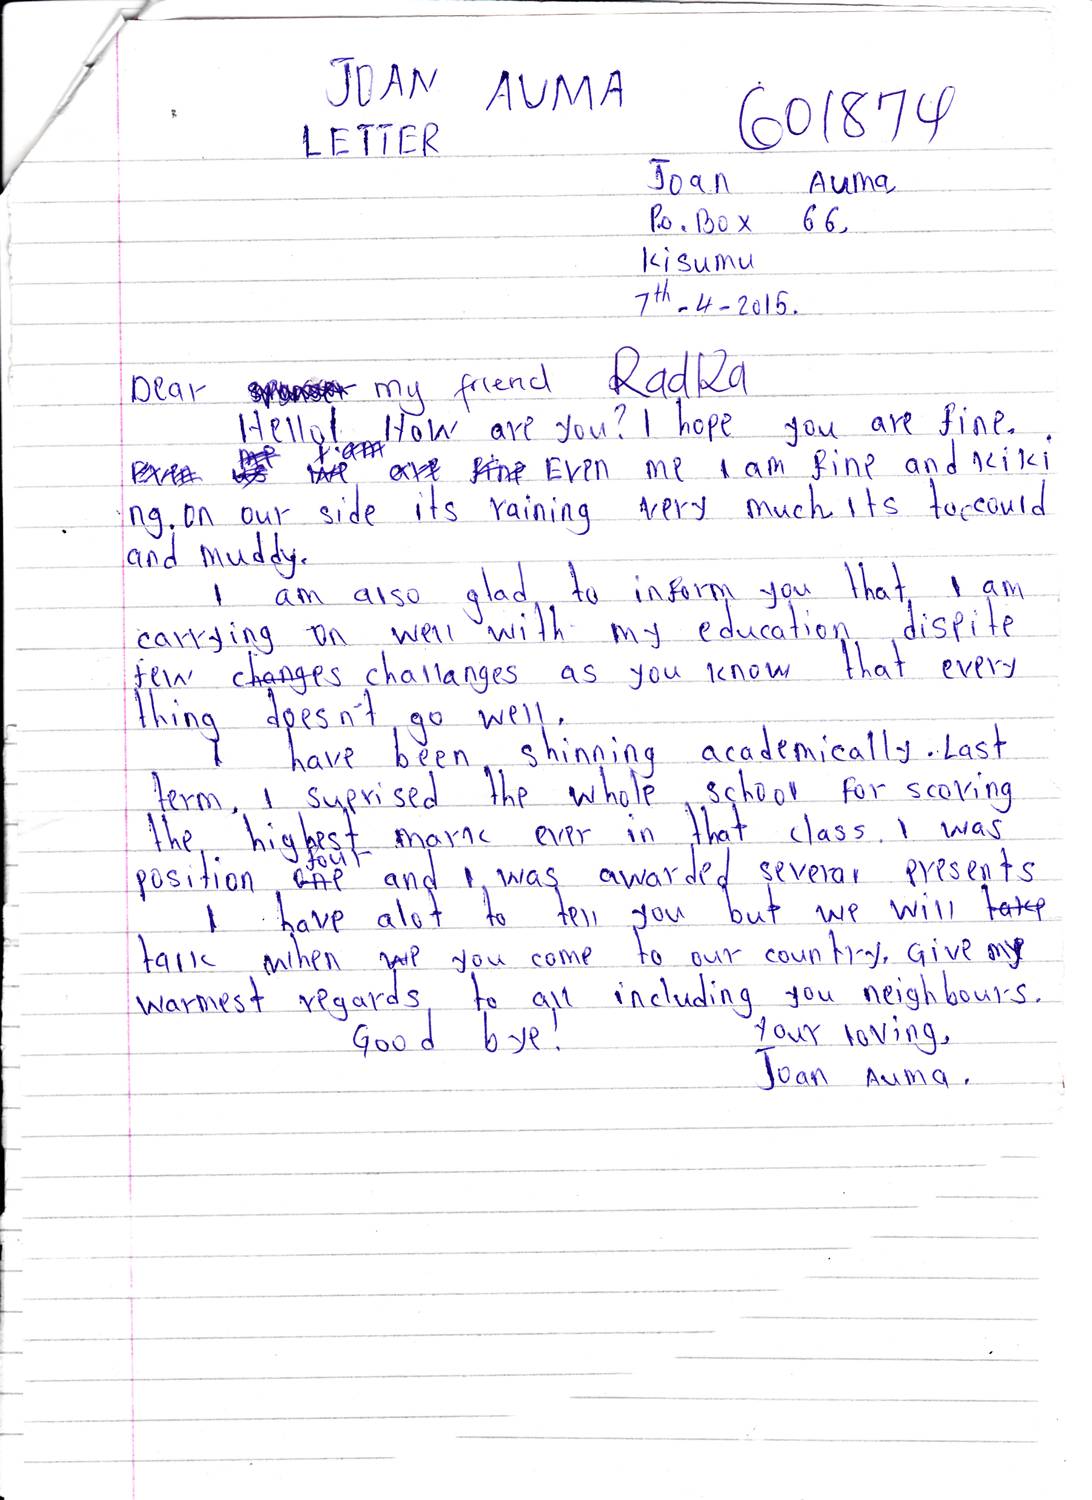 JOAN AUMA
LETTER
601874
Joan Auma
P.o. Box 66,
Kisumu
7th-4-2015.
Dear sponsor my friend Radka
Hello! How are you? I hope you are fine.
me I am
Even us we are fine Even me I am fine and kiki
ng. on our side its raining very much its too could
and muddy.
I am also glad to inform you that I am
carrying on well with my education dispite
few changes challanges as you know that every
thing doesn't go well.
I have been shinning academically. Last
term, I suprised the whole school for scoring
the highest mark ever in that class. I was
four
position one and I was awarded several presents
I have alot to tell you but we will take
talk when we you come to our country. Give my
warmest regards to all including you neighbours.
Good bye! Your loving,
Joan Auma.